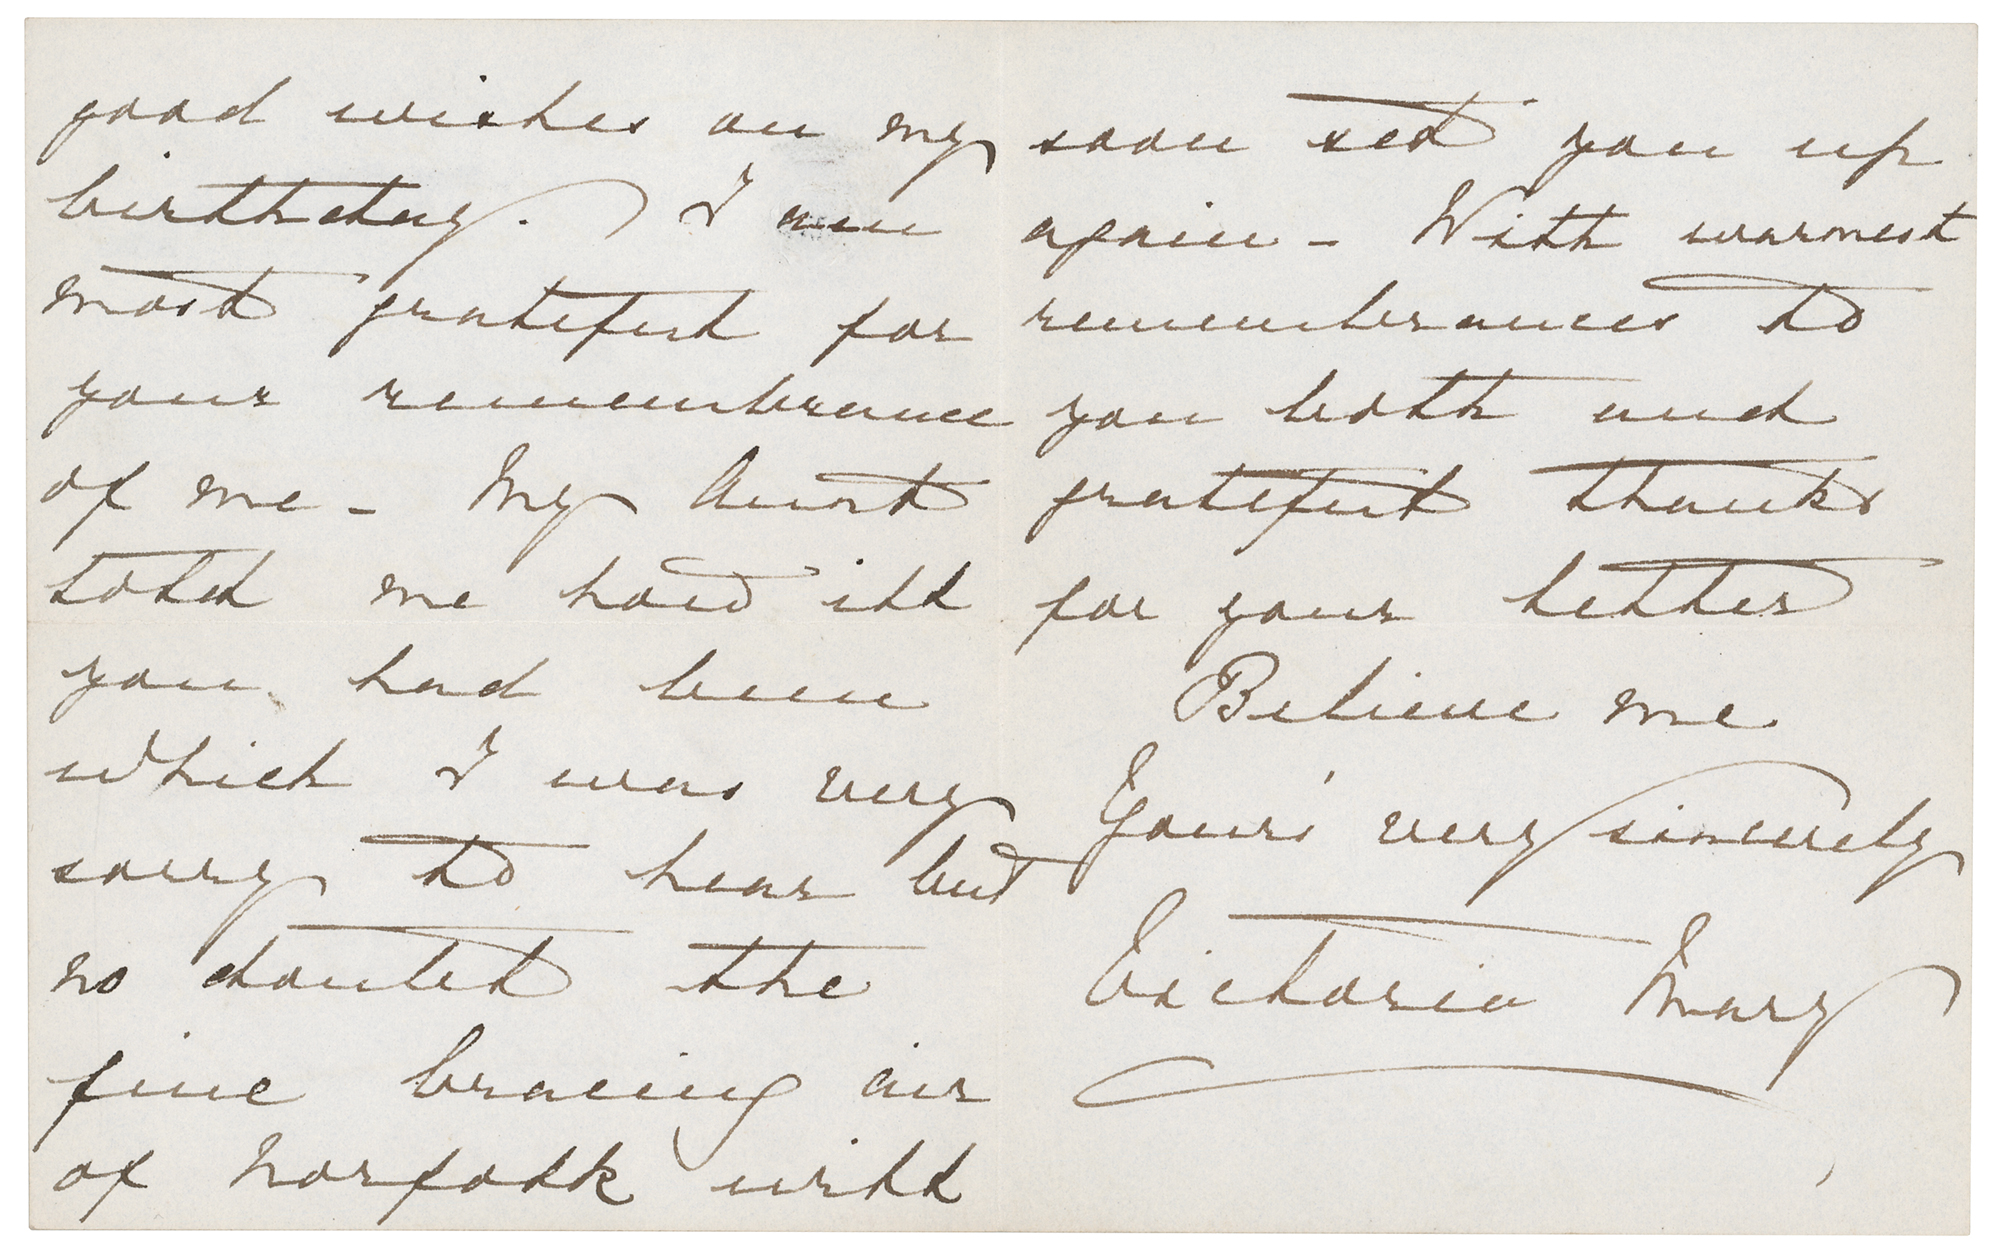 good wishes on my
birthday. I am
most grateful for
your remembrance
of me - My Aunt
told me how ill
you had been
which I was very
sorry to hear but
no doubt the
fine bracing air
of Norfolk will
soon set you up
again - With warmest
remembrances to
you both and
grateful thanks
for your letter
Believe me
Yours' very sincerely
Victoria Mary